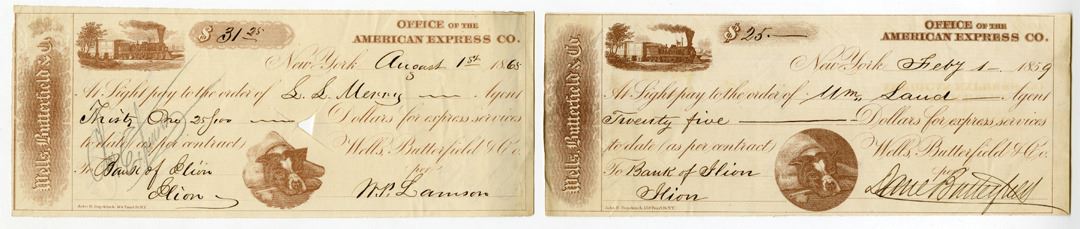 Wells, Butterfield & Co.
$ 31 25
OFFICE OF THE
AMERICAN EXPRESS CO.
New York August 1st 1865
At Sight pay to the order of L. L. Merry Agent
Thirty One 25/100 Dollars for express services
to date (as per contract) Wells, Butterfield & Co.
To Bank of Ilion per
Ilion W. P. Lamson
Wells, Butterfield & Co.
$ 25
OFFICE OF THE
AMERICAN EXPRESS CO.
New York Feby 1 1859
At Sight pay to the order of Wm. Agent
Twenty five Dollars for express services
to date (as per contract) Wells, Butterfield & Co.
To Bank of Ilion per
Ilion Butterfield